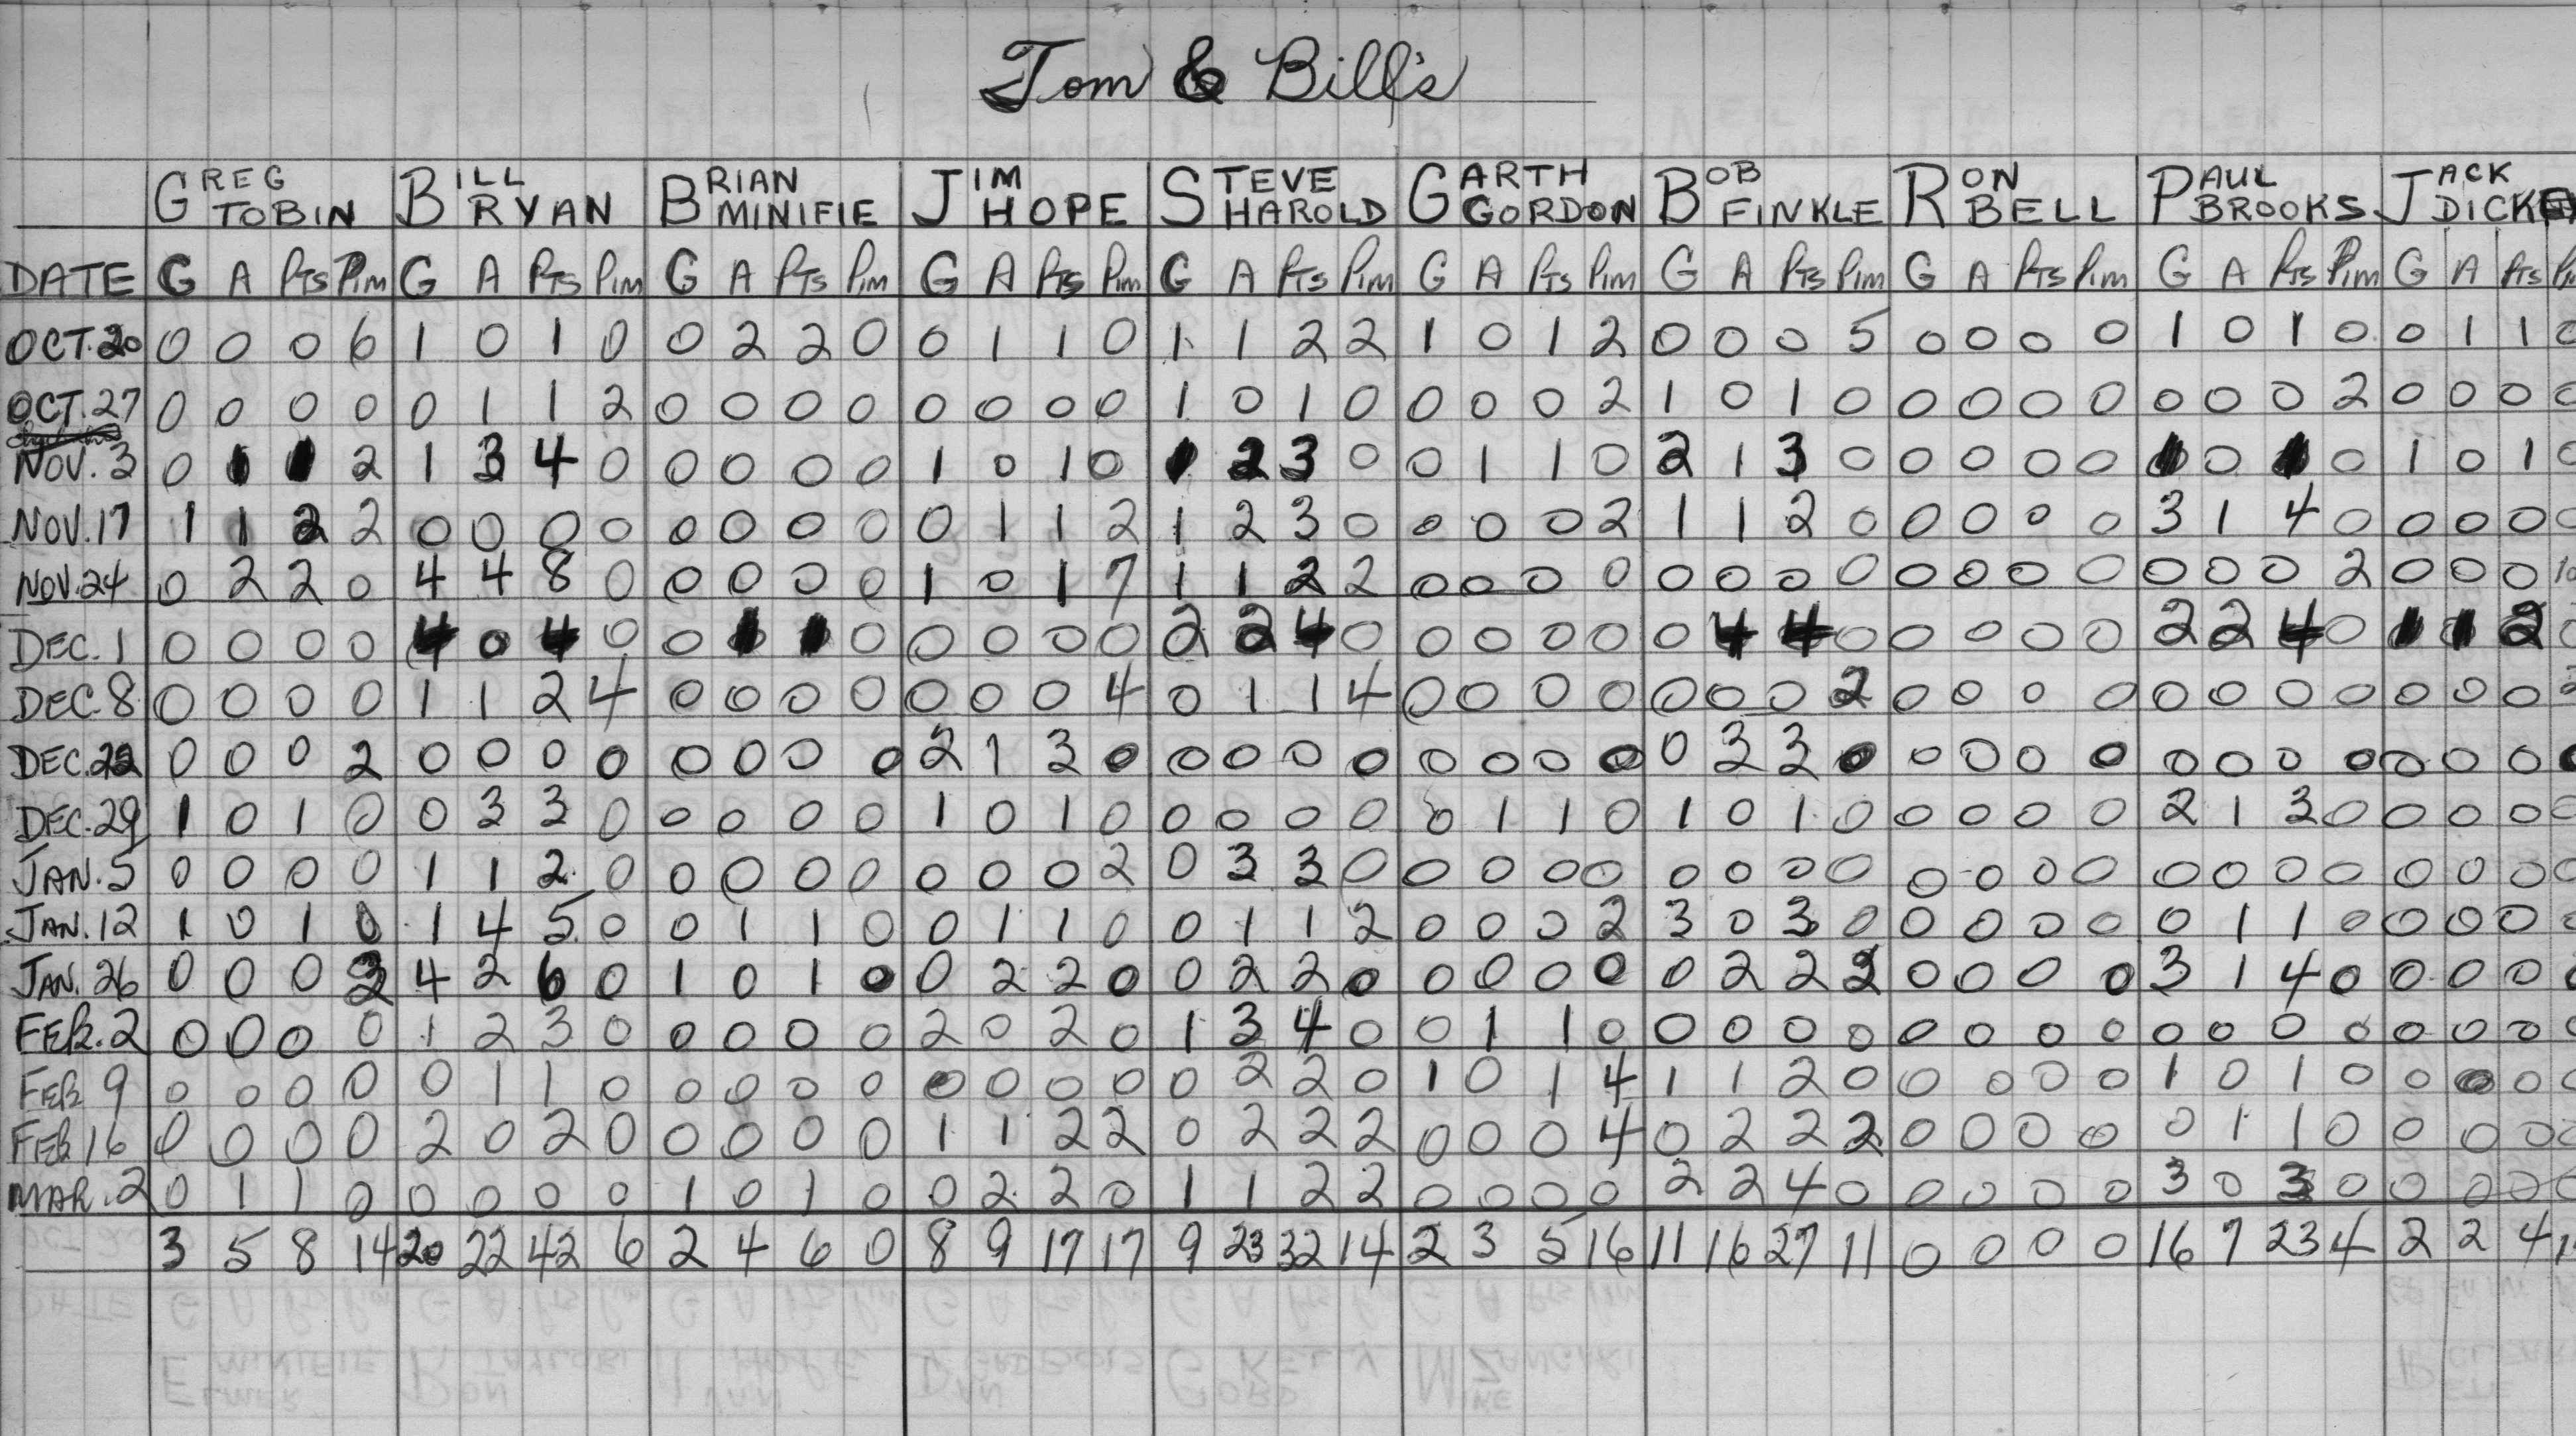 Tom & Bill's
GREG TOBIN BILL RYAN BRIAN MINIFIE JIM HOPE STEVE HAROLD GARTH GORDON BOB FINKLE RON BELL PAUL BROOKS JACK
DATE G A Pts Pim G A Pts Pim G A Pts Pim G A Pts Pim G A Pts Pim G A Pts Pim G A Pts Pim G A Pts Pim G A Pts Pim G A Pts
OCT. 20 0 0 0 6 1 0 1 0 0 2 2 0 0 1 1 0 1 1 2 2 1 0 1 2 0 0 0 5 0 0 0 0 1 0 1 0 0 1 1 0
OCT. 27 0 0 0 0 0 1 1 2 0 0 0 0 0 0 0 0 1 0 1 0 0 0 0 2 1 0 1 0 0 0 0 0 0 0 0 2 0 0 0 0
NOV. 3 0 1 1 2 1 3 4 0 0 0 0 0 1 0 1 0 1 2 3 0 0 1 1 0 2 1 3 0 0 0 0 0 1 0 1 0 1 0 1 0
NOV. 17 1 1 2 2 0 0 0 0 0 0 0 0 0 1 1 2 1 2 3 0 0 0 0 2 1 1 2 0 0 0 0 0 3 1 4 0 0 0 0 0
NOV. 24 0 2 2 0 4 4 8 0 0 0 0 0 1 0 1 7 1 1 2 2 0 0 0 0 0 0 0 0 0 0 0 0 0 0 0 2 0 0 0 10
DEC. 1 0 0 0 0 4 0 4 0 0 1 1 0 0 0 0 0 2 2 4 0 0 0 0 0 0 4 4 0 0 0 0 0 2 2 4 0 1 1 2 0
DEC. 8 0 0 0 0 1 1 2 4 0 0 0 0 0 0 0 4 0 1 1 4 0 0 0 0 0 0 0 2 0 0 0 0 0 0 0 0 0 0 0
DEC. 22 0 0 0 2 0 0 0 0 0 0 0 0 2 1 3 0 0 0 0 0 0 0 0 0 0 3 3 0 0 0 0 0 0 0 0 0 0 0 0 0
DEC. 29 1 0 1 0 0 3 3 0 0 0 0 0 1 0 1 0 0 0 0 0 0 1 1 0 1 0 1 0 0 0 0 0 2 1 3 0 0 0 0 0
JAN. 5 0 0 0 0 1 1 2 0 0 0 0 0 0 0 0 2 0 3 3 0 0 0 0 0 0 0 0 0 0 0 0 0 0 0 0 0 0 0 0 0
JAN. 12 1 0 1 0 1 4 5 0 0 1 1 0 0 1 1 0 0 1 1 2 0 0 0 2 3 0 3 0 0 0 0 0 0 1 1 0 0 0 0 0
JAN. 26 0 0 0 2 4 2 6 0 1 0 1 0 0 2 2 0 0 2 2 0 0 0 0 0 0 2 2 2 0 0 0 0 3 1 4 0 0 0 0
FEB. 2 0 0 0 0 1 2 3 0 0 0 0 0 2 0 2 0 1 3 4 0 0 1 1 0 0 0 0 0 0 0 0 0 0 0 0 0 0 0 0 0
FEB 9 0 0 0 0 0 1 1 0 0 0 0 0 0 0 0 0 0 2 2 0 1 0 1 4 1 1 2 0 0 0 0 0 1 0 1 0 0 0 0 0
FEB 16 0 0 0 0 2 0 2 0 0 0 0 0 1 1 2 2 0 2 2 2 0 0 0 4 0 2 2 2 0 0 0 0 0 1 1 0 0 0 0 0
MAR. 2 0 1 1 0 0 0 0 0 1 0 1 0 0 2 2 0 1 1 2 2 0 0 0 0 2 2 4 0 0 0 0 0 3 0 3 0 0 0 0 0
3 5 8 14 20 22 42 6 2 4 6 0 8 9 17 17 9 23 32 14 2 3 5 16 11 16 27 11 0 0 0 0 16 7 23 4 2 2 4